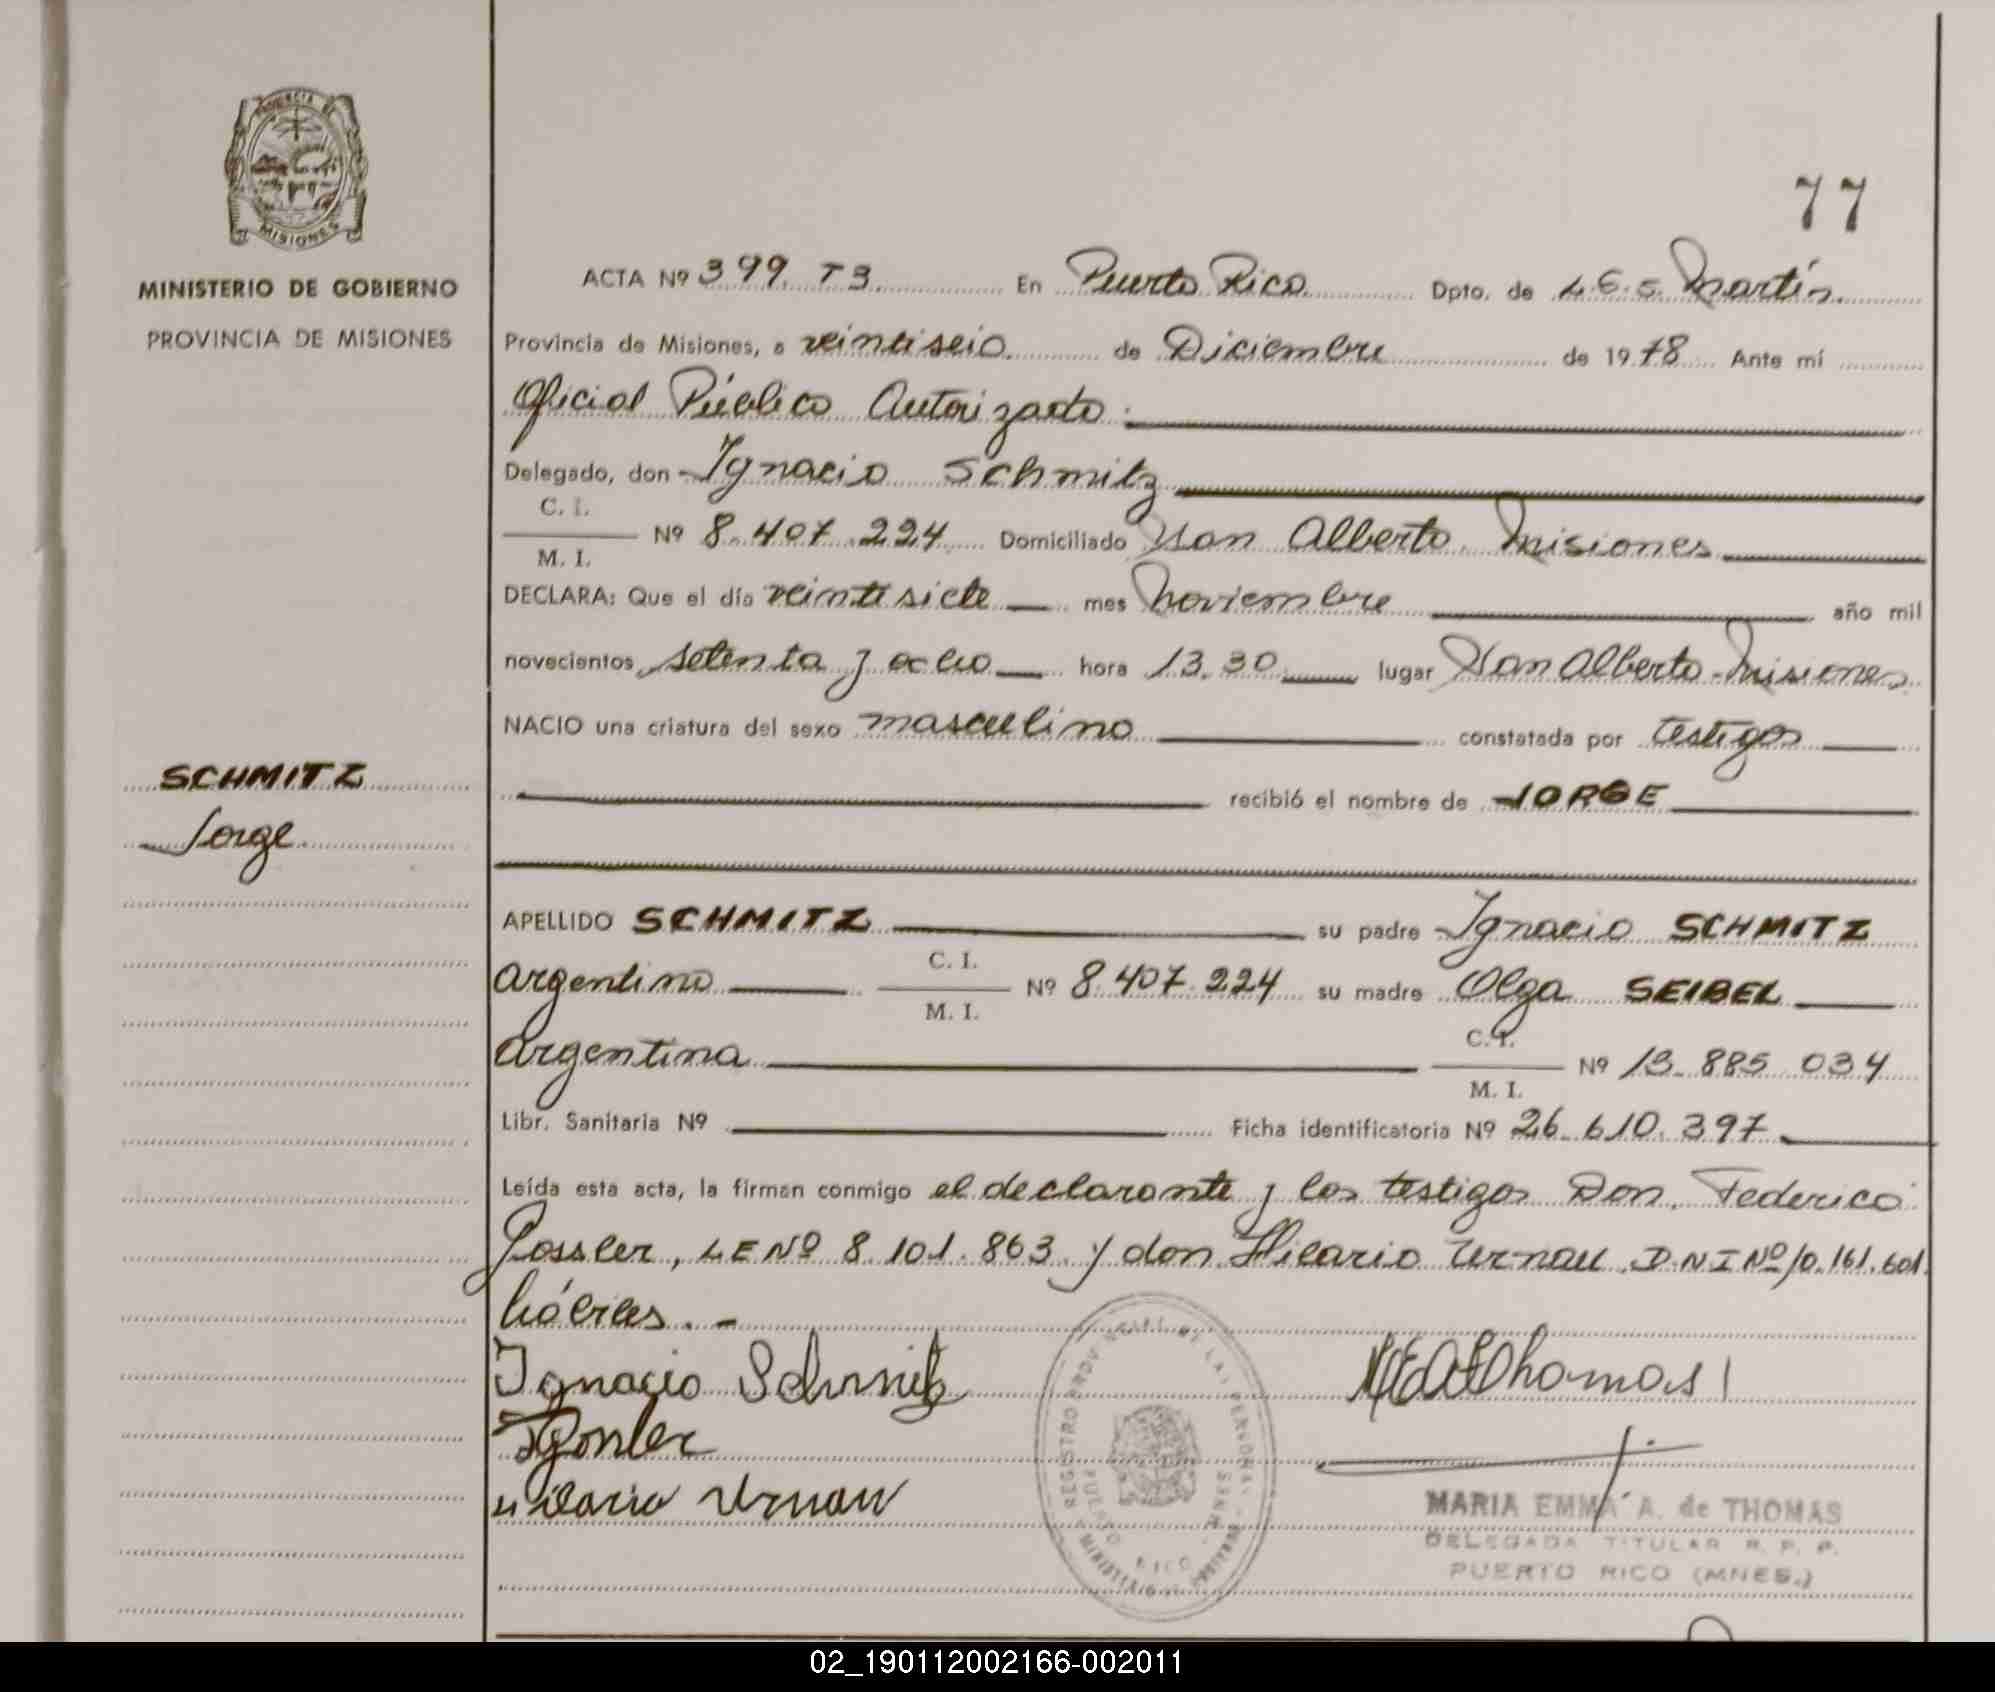 PROVINCIA DE
MISIONES
MINISTERIO DE GOBIERNO
PROVINCIA DE MISIONES
77
ACTA Nº 399 T3. En Puerto Rico Dpto. de L.G.S. Martín
Provincia de Misiones, a veintiseis de Diciembre de 1978 Ante mí
Oficial Público Autorizado
Delegado, don Ignacio Schmitz
C. I.
M. I.
Nº 8.407.224 Domiciliado San Alberto Misiones
DECLARA: Que el día veintisiete mes Noviembre año mil
novecientos setenta y ocho hora 13.30 lugar San Alberto-Misiones
NACIO una criatura del sexo masculino constatada por testigos
SCHMITZ
Jorge
recibió el nombre de JORGE
APELLIDO SCHMITZ su padre Ignacio SCHMITZ
argentino C. I. M. I. Nº 8.407.224 su madre Olga SEIBEL
argentina C. I. M. I. Nº 13.885.034
Libr. Sanitaria Nº Ficha identificatoria Nº 26.610.397
Leída esta acta, la firman conmigo el declarante y los testigos Don Federico
Gossler, LE Nº 8.101.863 y don Hilario Urnau D.N.I Nº 10.161.601
hábiles. -
Ignacio Schmitz
Hilario Urnau
Thomas
MARIA EMMA A. de THOMAS
DELEGADA TITULAR R. P. P.
PUERTO RICO (MNES.)
02_190112002166-002011